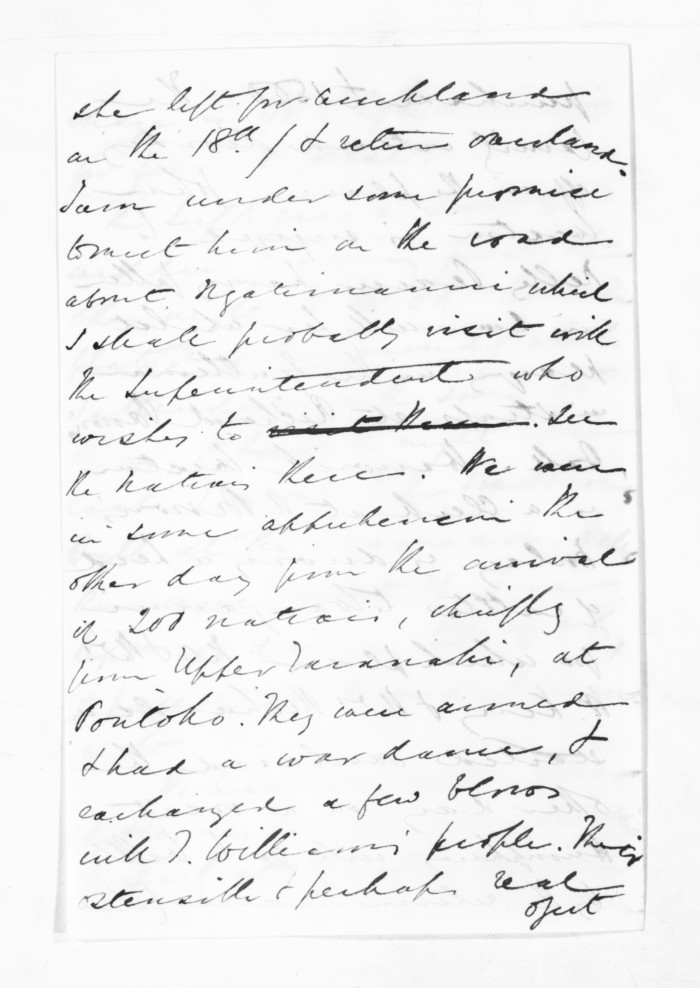 she left for Auckland
on the 18th / & return overland.
I am under some promise
to meet him on the road
about Ngatimaniri which
I shall probably visit with
the Superintendent who
wishes to visit them. See
the natives there. We were
in some apprehension the
other day from the arrival
of 200 natives, chiefly
from Upper Taranaki, at
Poutoko. They were armed
& had a war dance, &
exchanged a few blows
with T. Williams people. Their
ostensible & perhaps real
object